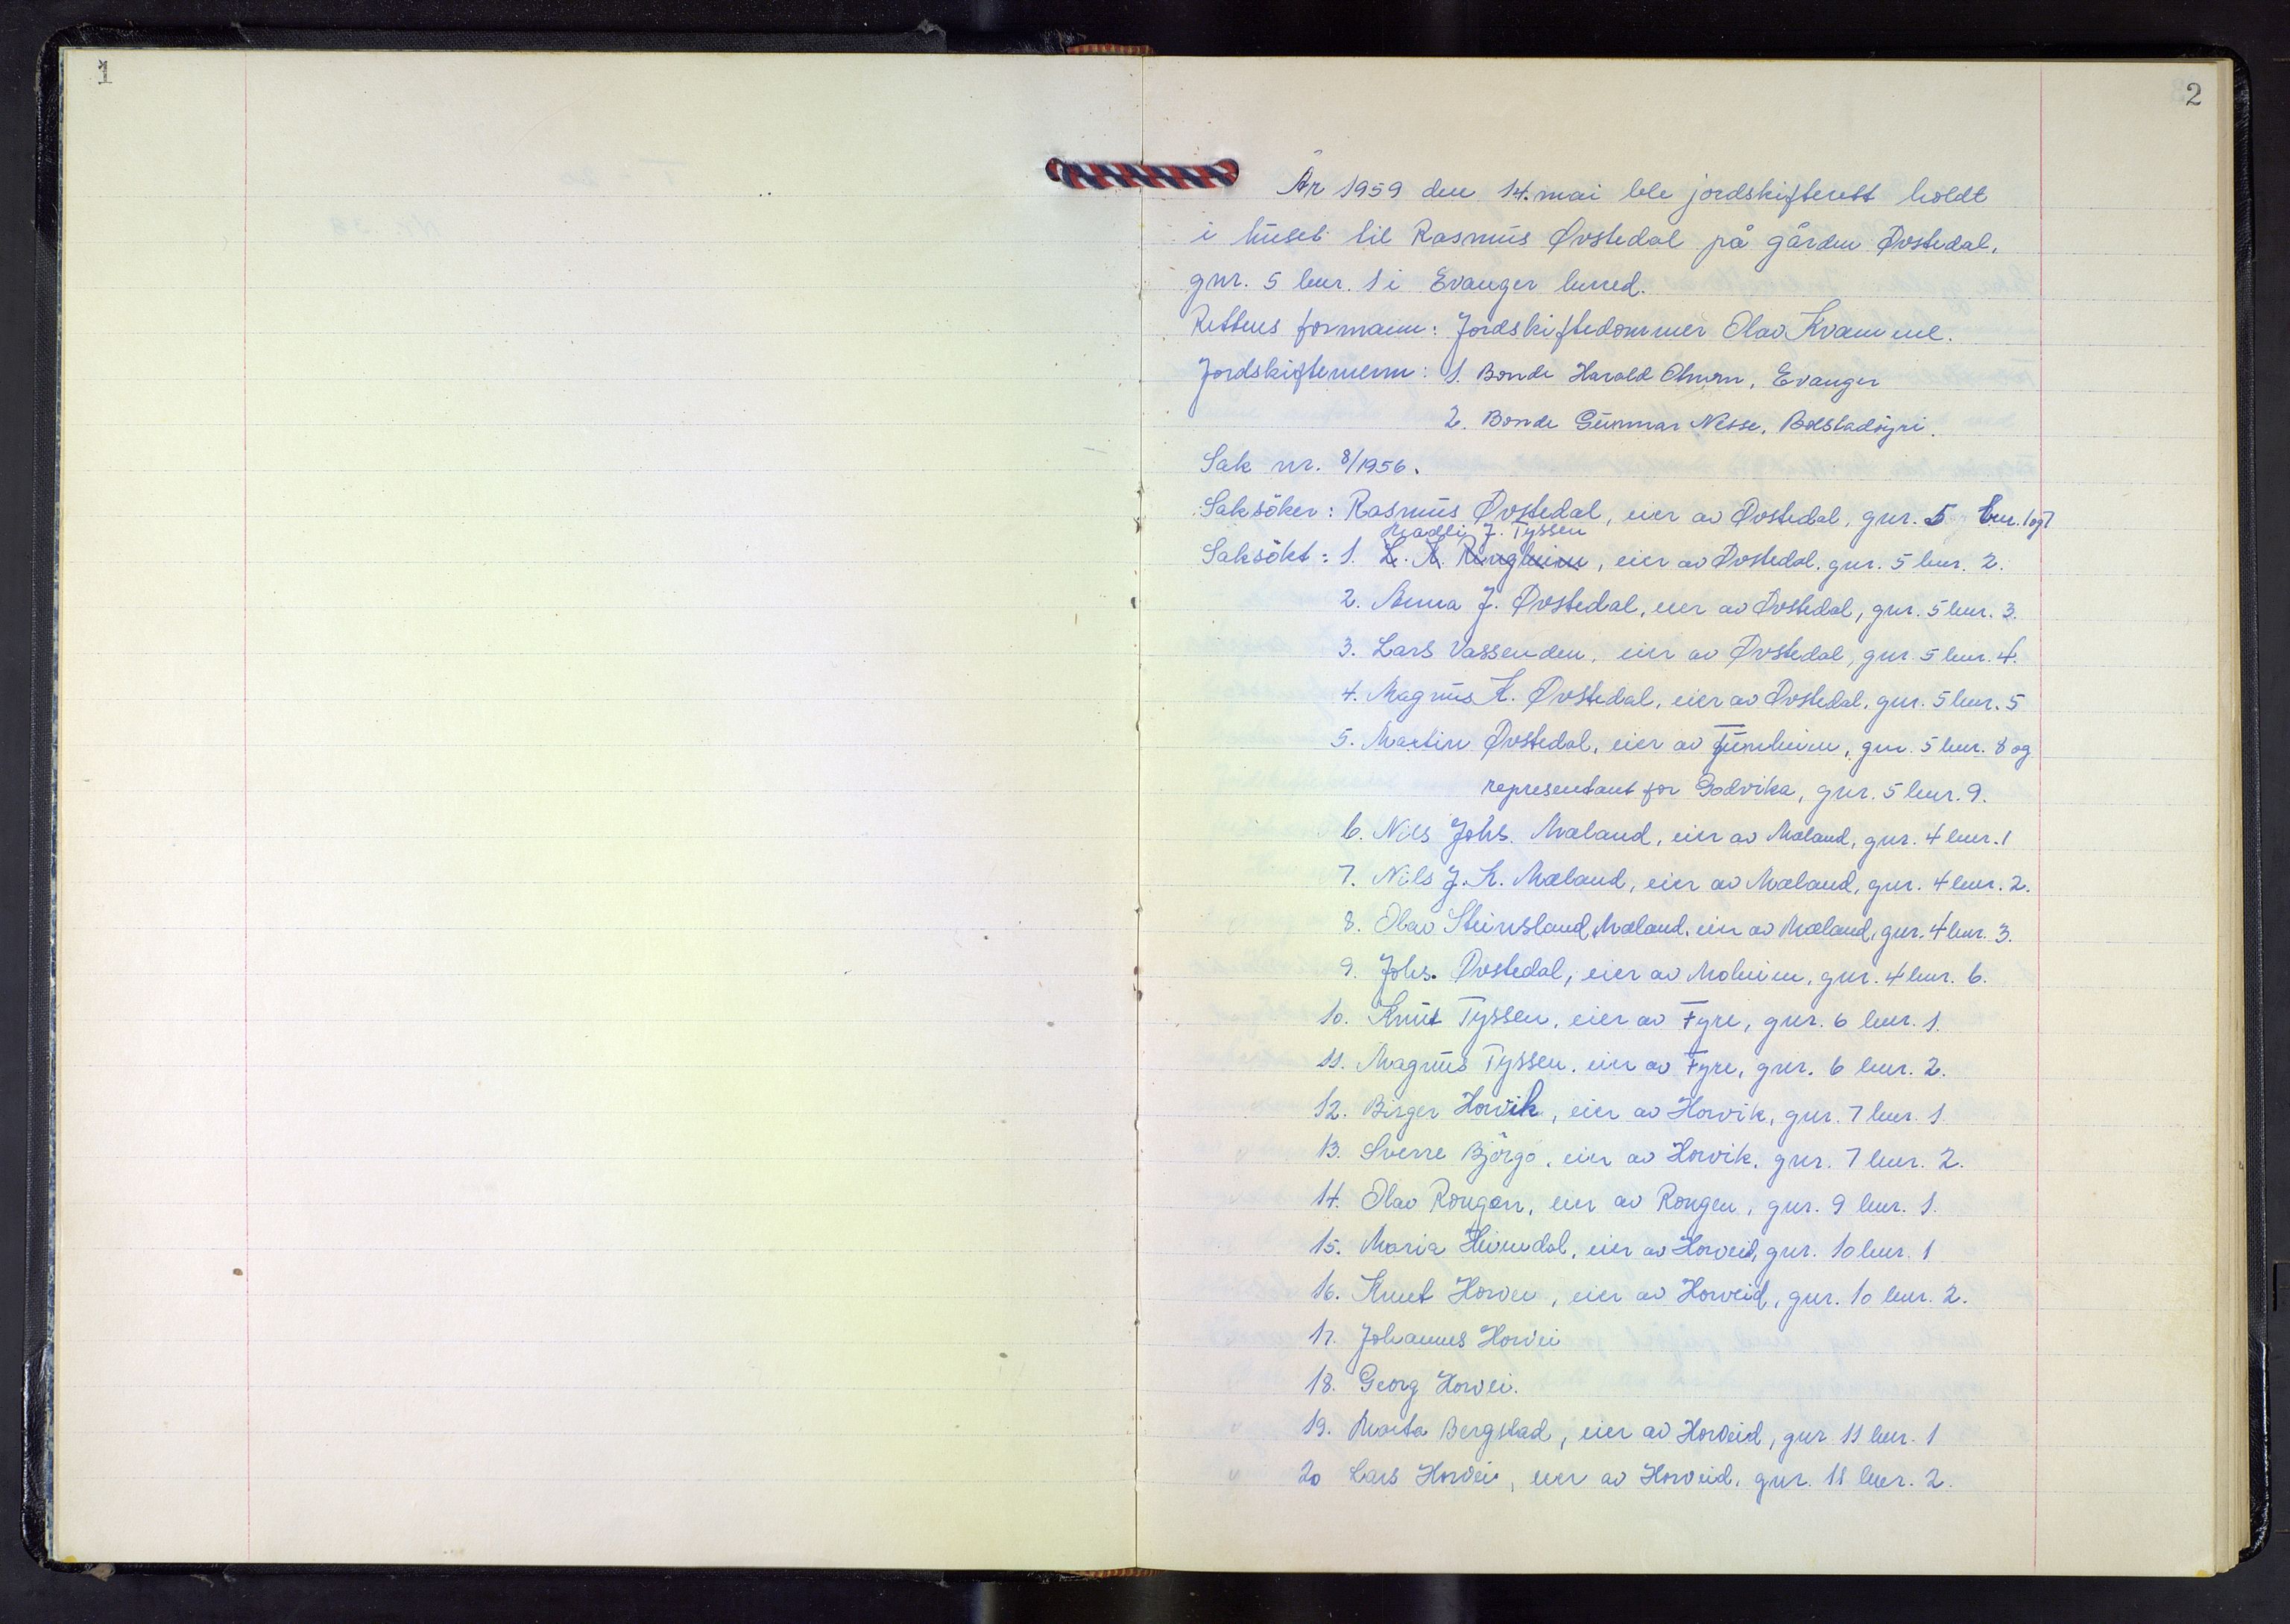 1
2
År 1959 den 14. mai ble jordskifterett holdt
i huset til Rasmus Øvstedal på gården Øvstedal,
gnr. 5 bnr. 1 i Evanger herred.
Rettens formann: Jordskiftedommer Olav Kvamme.
Jordskiftemenn: 1. Bonde Harald, Evanger
2. Bonde Gunnar Nesse, Bolstadøyri.
Sak nr. 8/1956.
Saksöker: Rasmus Øvstedal, eier av Øvstedal, gnr. 5 bnr. 1 og 7
J. Tyssen
Saksökt: 1. L. N. Ringheim, eier av Øvstedal, gnr. 5 bnr. 2.
2. Anna J. Øvstedal, eier av Øvstedal, gnr. 5 bnr. 3.
3. Lars Vassenden, eier av Øvstedal, gnr. 5 bnr. 4.
4. Magnus K. Øvstedal, eier av Øvstedal, gnr. 5 bnr. 5
5. Martin Øvstedal, eier av Tunheim, gnr. 5 bnr. 8 og
representant for Godvika, gnr. 5 bnr. 9.
6. Nils Johs. Mæland, eier av Mæland, gnr. 4 bnr. 1
7. Nils J. K. Mæland, eier av Mæland, gnr. 4 bnr. 2.
8. Olav Steinsland Mæland, eier av Mæland, gnr. 4 bnr. 3.
9. Johs. Øvstedal, eier av Moheim, gnr. 4 bnr. 6.
10. Knut Tyssen, eier av Fyre, gnr. 6 bnr. 1.
11. Magnus Tyssen, eier av Fyre, gnr. 6 bnr. 2.
12. Birger Horvik, eier av Horvik, gnr. 7 bnr. 1
13. Sverre Björgo, eier av Horvik, gnr. 7 bnr. 2.
14. Olav Rongen, eier av Rongen, gnr. 9 bnr. 1.
15. Maria Heimdal, eier av Horveid, gnr. 10 bnr. 1
16. Knut Horvei, eier av Horveid, gnr. 10 bnr. 2.
17. Johannes Horvei
18. Georg Horvei.
19. Marta Bergstad, eier av Horveid, gnr 11 bnr. 1
20 Lars Horvei, eier av Horveid, gnr. 11 bnr. 2.